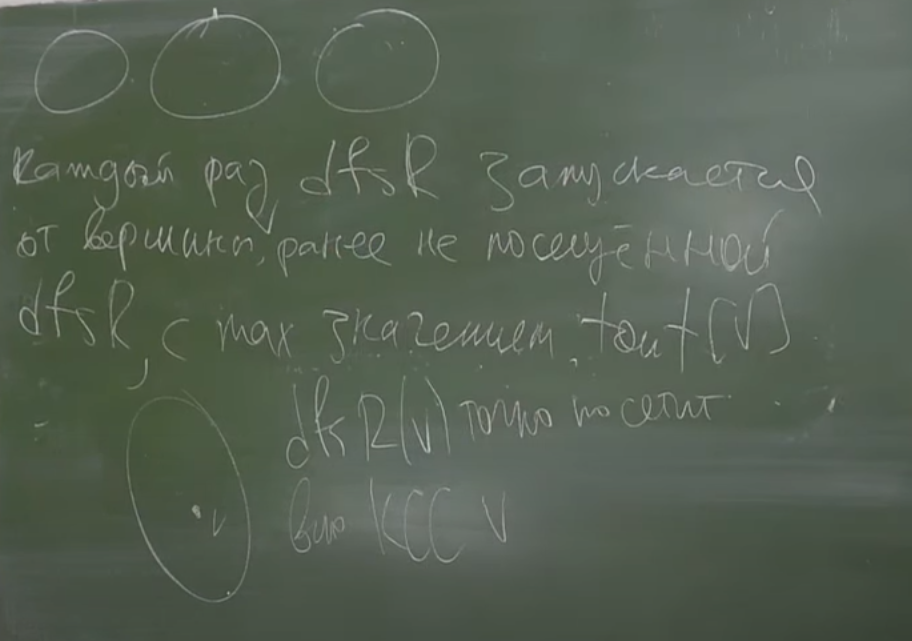 Каждый раз dfsR запускается
от вершины v, ранее не посещённой
dfsR, с max значением tout[V]
dfsR(v) точно посетит
v всю КСС V